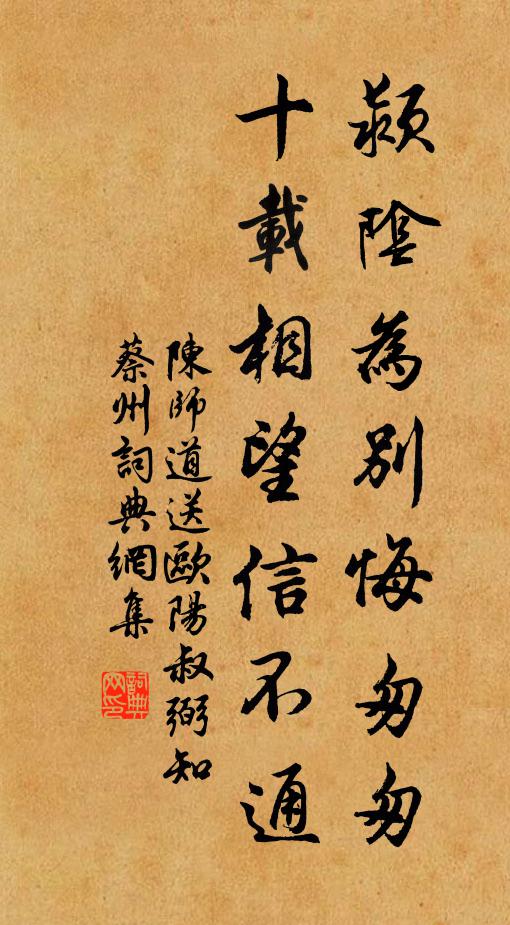 潁陰為別悔匆匆
十載相望信不通
陳師道送歐陽叔弼知
蔡州詞典網集
詞典
网印